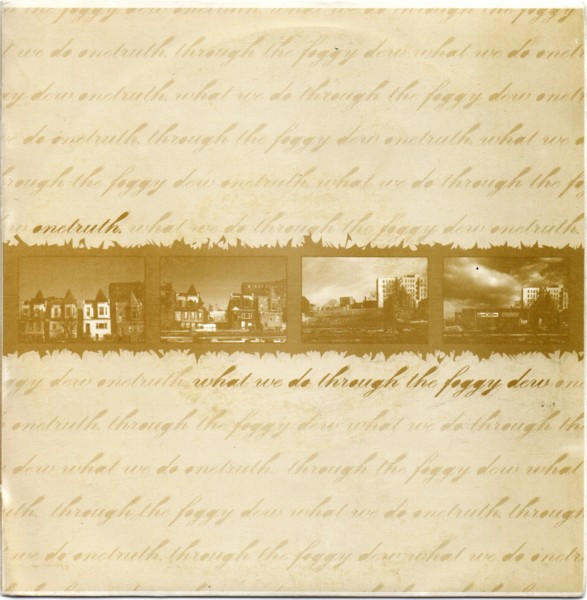 what we do onetruth. through the foggy dew what we do
foggy dew onetruth. what we do through the foggy dew
we do onetruth. through the foggy dew onetruth. what we
through the foggy dew onetruth. what we do through the
onetruth. what we do through the foggy dew onetruth.
foggy dew onetruth. what we do through the foggy dew
onetruth. through the foggy dew what we do through the
dew what we do onetruth. through the foggy dew what
through the foggy dew onetruth. what we do
we do onetruth. through the foggy dew what we do